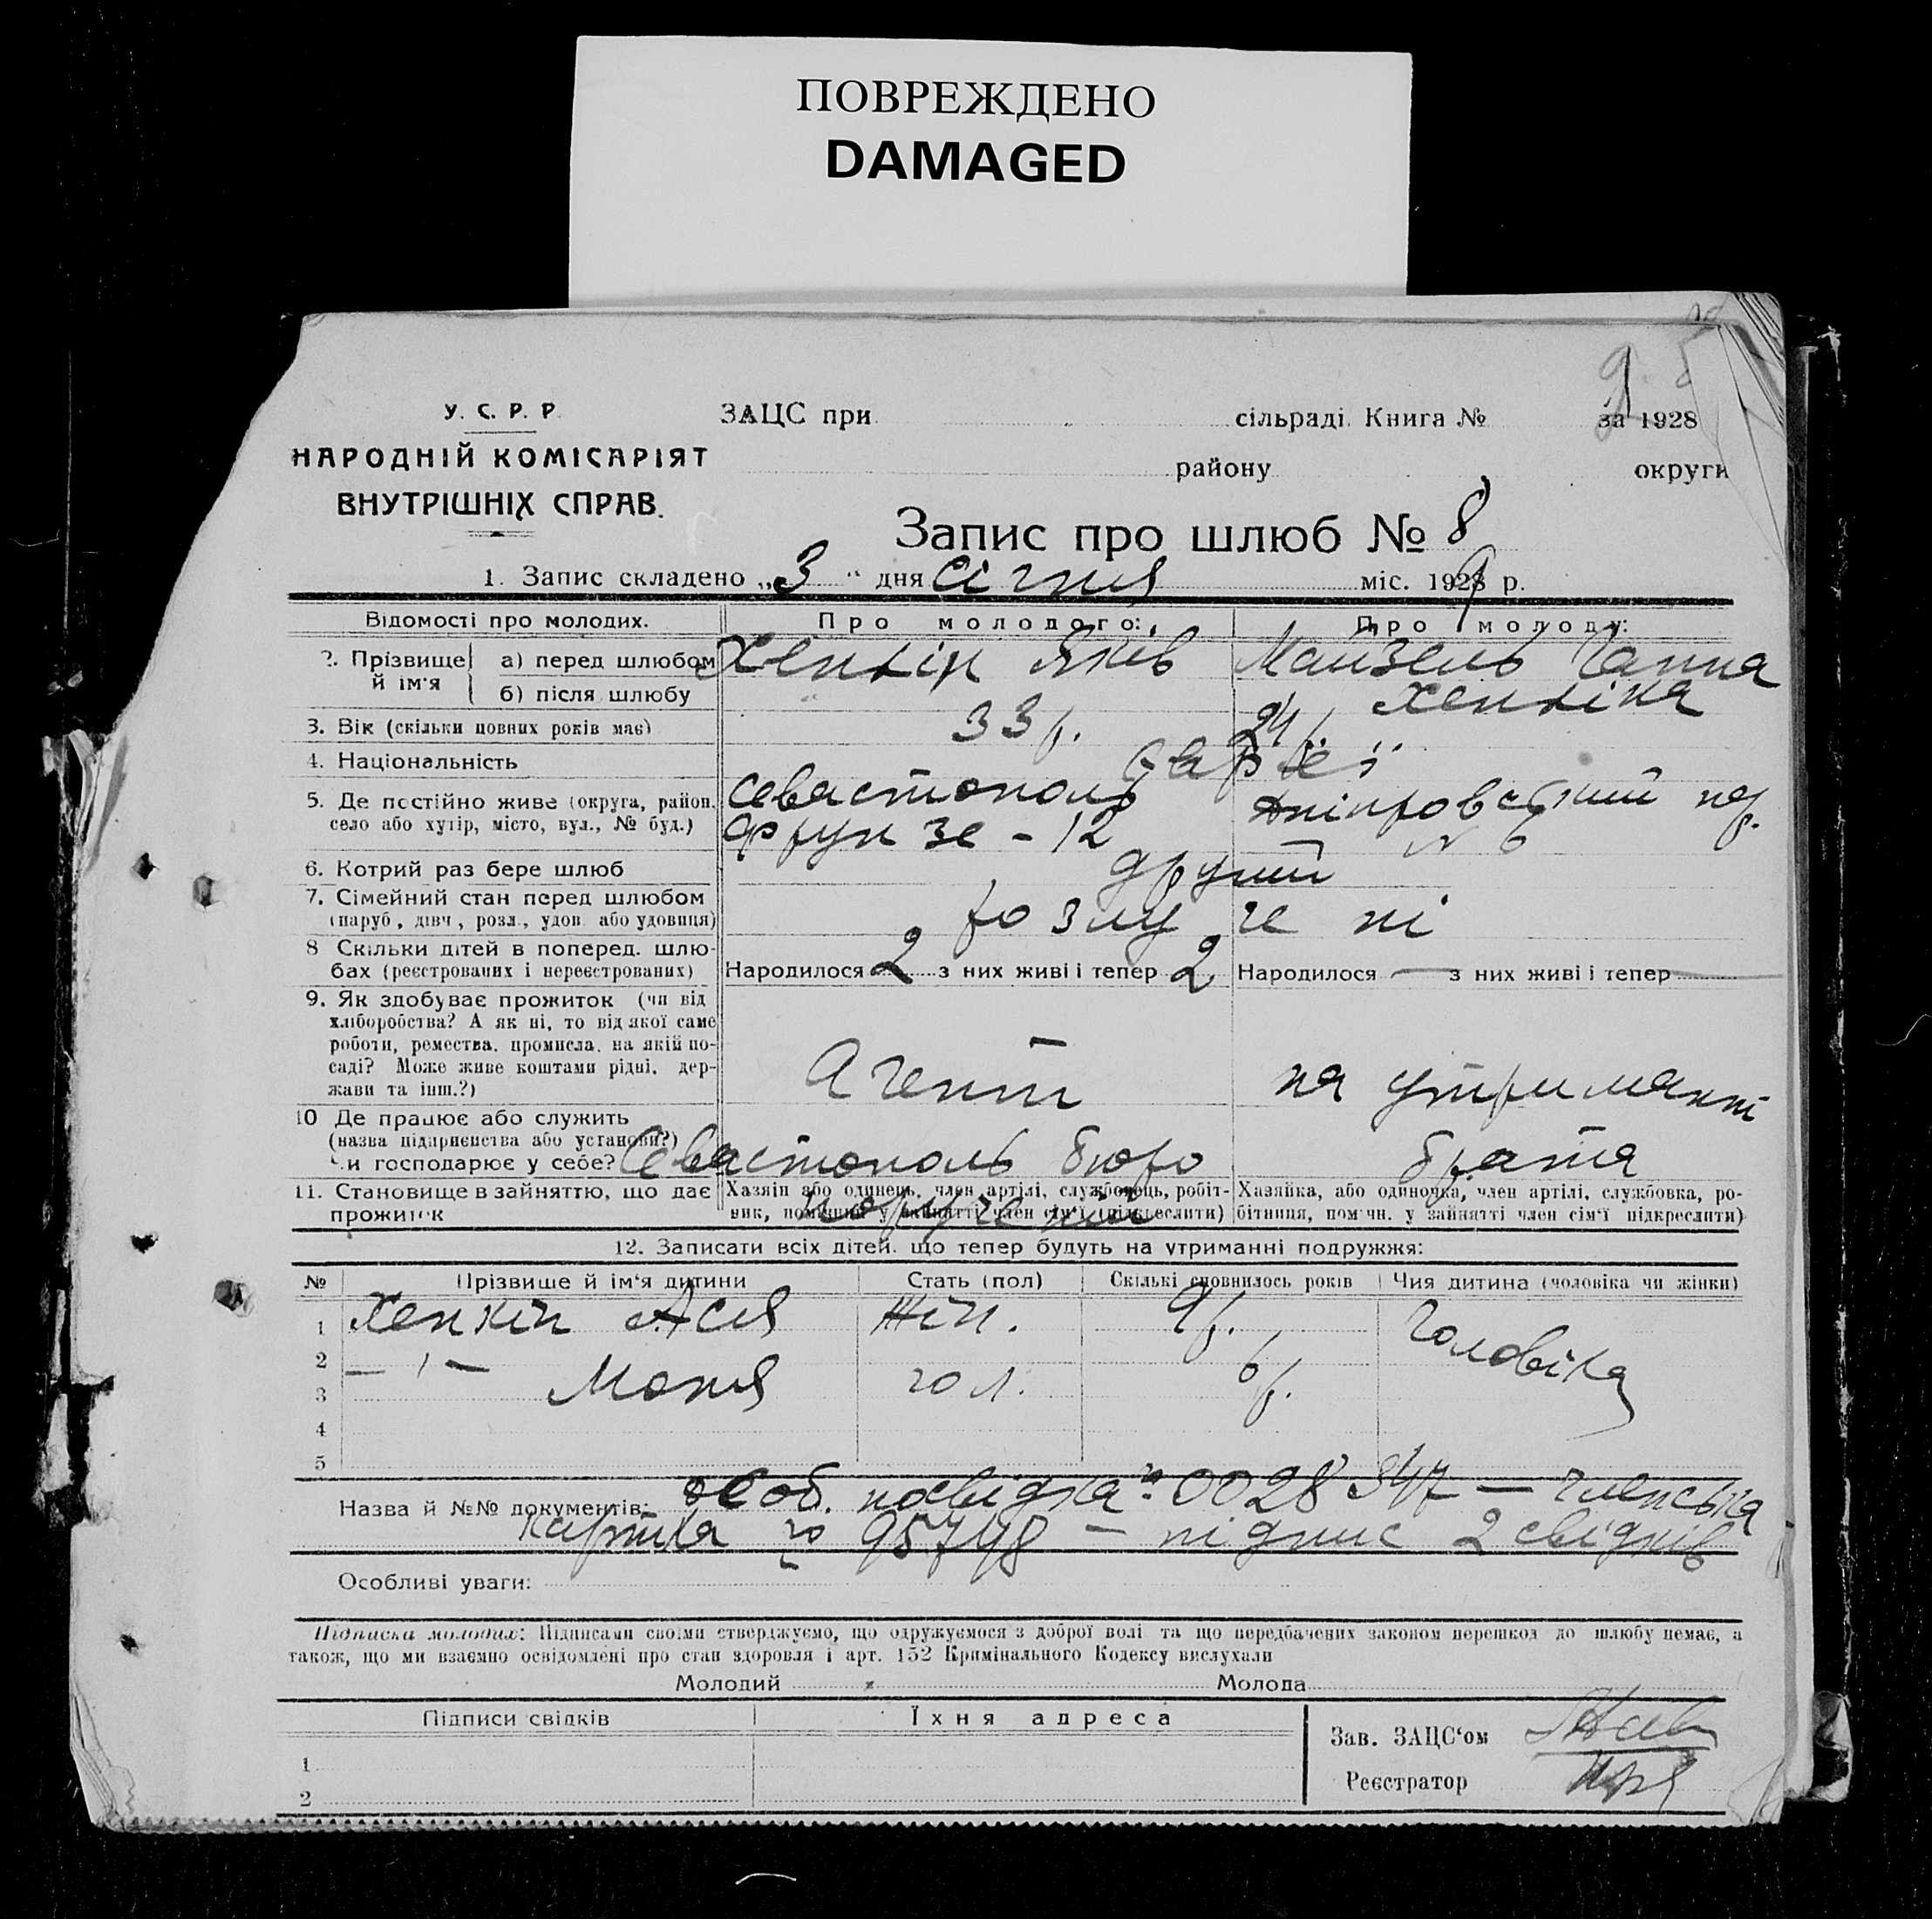 ПОВРЕЖДЕНО
DAMAGED
У. С. Р. Р.
НАРОДНІЙ КОМІСАРІЯТ
ВНУТРІШНІХ СПРАВ.
ЗАЦС при сільраді. Книга № за 1928
району округи
Запис про шлюб № 8
1. Запис складено „3“ дня січня міс. 1929 р.
Відомості про молодих. Про молодого: Про молоду:
2. Прізвище й ім'я а) перед шлюбом Хенкін Яків Майзель Ганна
б) після шлюбу Хенкіна
3. Вік (скільки повних років має) 33 р. 24 р.
4. Національність євреї
5. Де постійно живе (округа, район, село або хутір, місто, вул., № буд.) Севастополь Фрунзе - 12 Дніпровський пер. № 6
6. Котрий раз бере шлюб другий
7. Сімейний стан перед шлюбом (паруб., дівч., розл., удов. або удовиця) розлучені
8 Скільки дітей в поперед. шлюбах (реєстрованих і нереєстрованих) Народилося 2 з них живі і тепер 2 Народилося — з них живі і тепер —
9. Як здобуває прожиток (чи від хліборобства? А як ні, то від якої саме роботи, ремества, промисла, на якій посаді? Може живе коштами рідні, держави та інш.?) Агент на утриманні
10 Де працює або служить (назва підприємства або установи?) Чи господарює у себе? Севастополь бюро поручений брата
11. Становище в зайняттю, що дає прожиток Хазяїн або одинець, член артілі, службовець, робітник, помічний у зайнятті член сім'ї (підкреслити) Хазяйка, або одиночка, член артілі, службовка, робітниця, помічн. у зайнятті член сім'ї підкреслити)
12. Записати всіх дітей, що тепер будуть на утриманні подружжя:
№ Прізвище й ім'я дитини Стать (пол) Скількі сповнилось років Чия дитина (чоловіка чи жінки)
1 Хенкін Ася жін. 9 р. Чоловіка
2 — " — Моня чол. 6 р.
3
4
5
Назва й №№ документів: особ. посвідка № 0028347 — членська
картка № 95748 — підпис 2 свідків
Особливі уваги:
Підписка молодих: Підписами своїми стверджуємо, що одружуємося з доброї волі та що передбачених законом перешкод до шлюбу немає, а
також, що ми взаємно освідомлені про стан здоровля і арт. 152 Кримінального Кодексу вислухали
Молодий Молода
Підписи свідків Їхня адреса
Зав. ЗАЦС'ом
1
Реєстратор
2